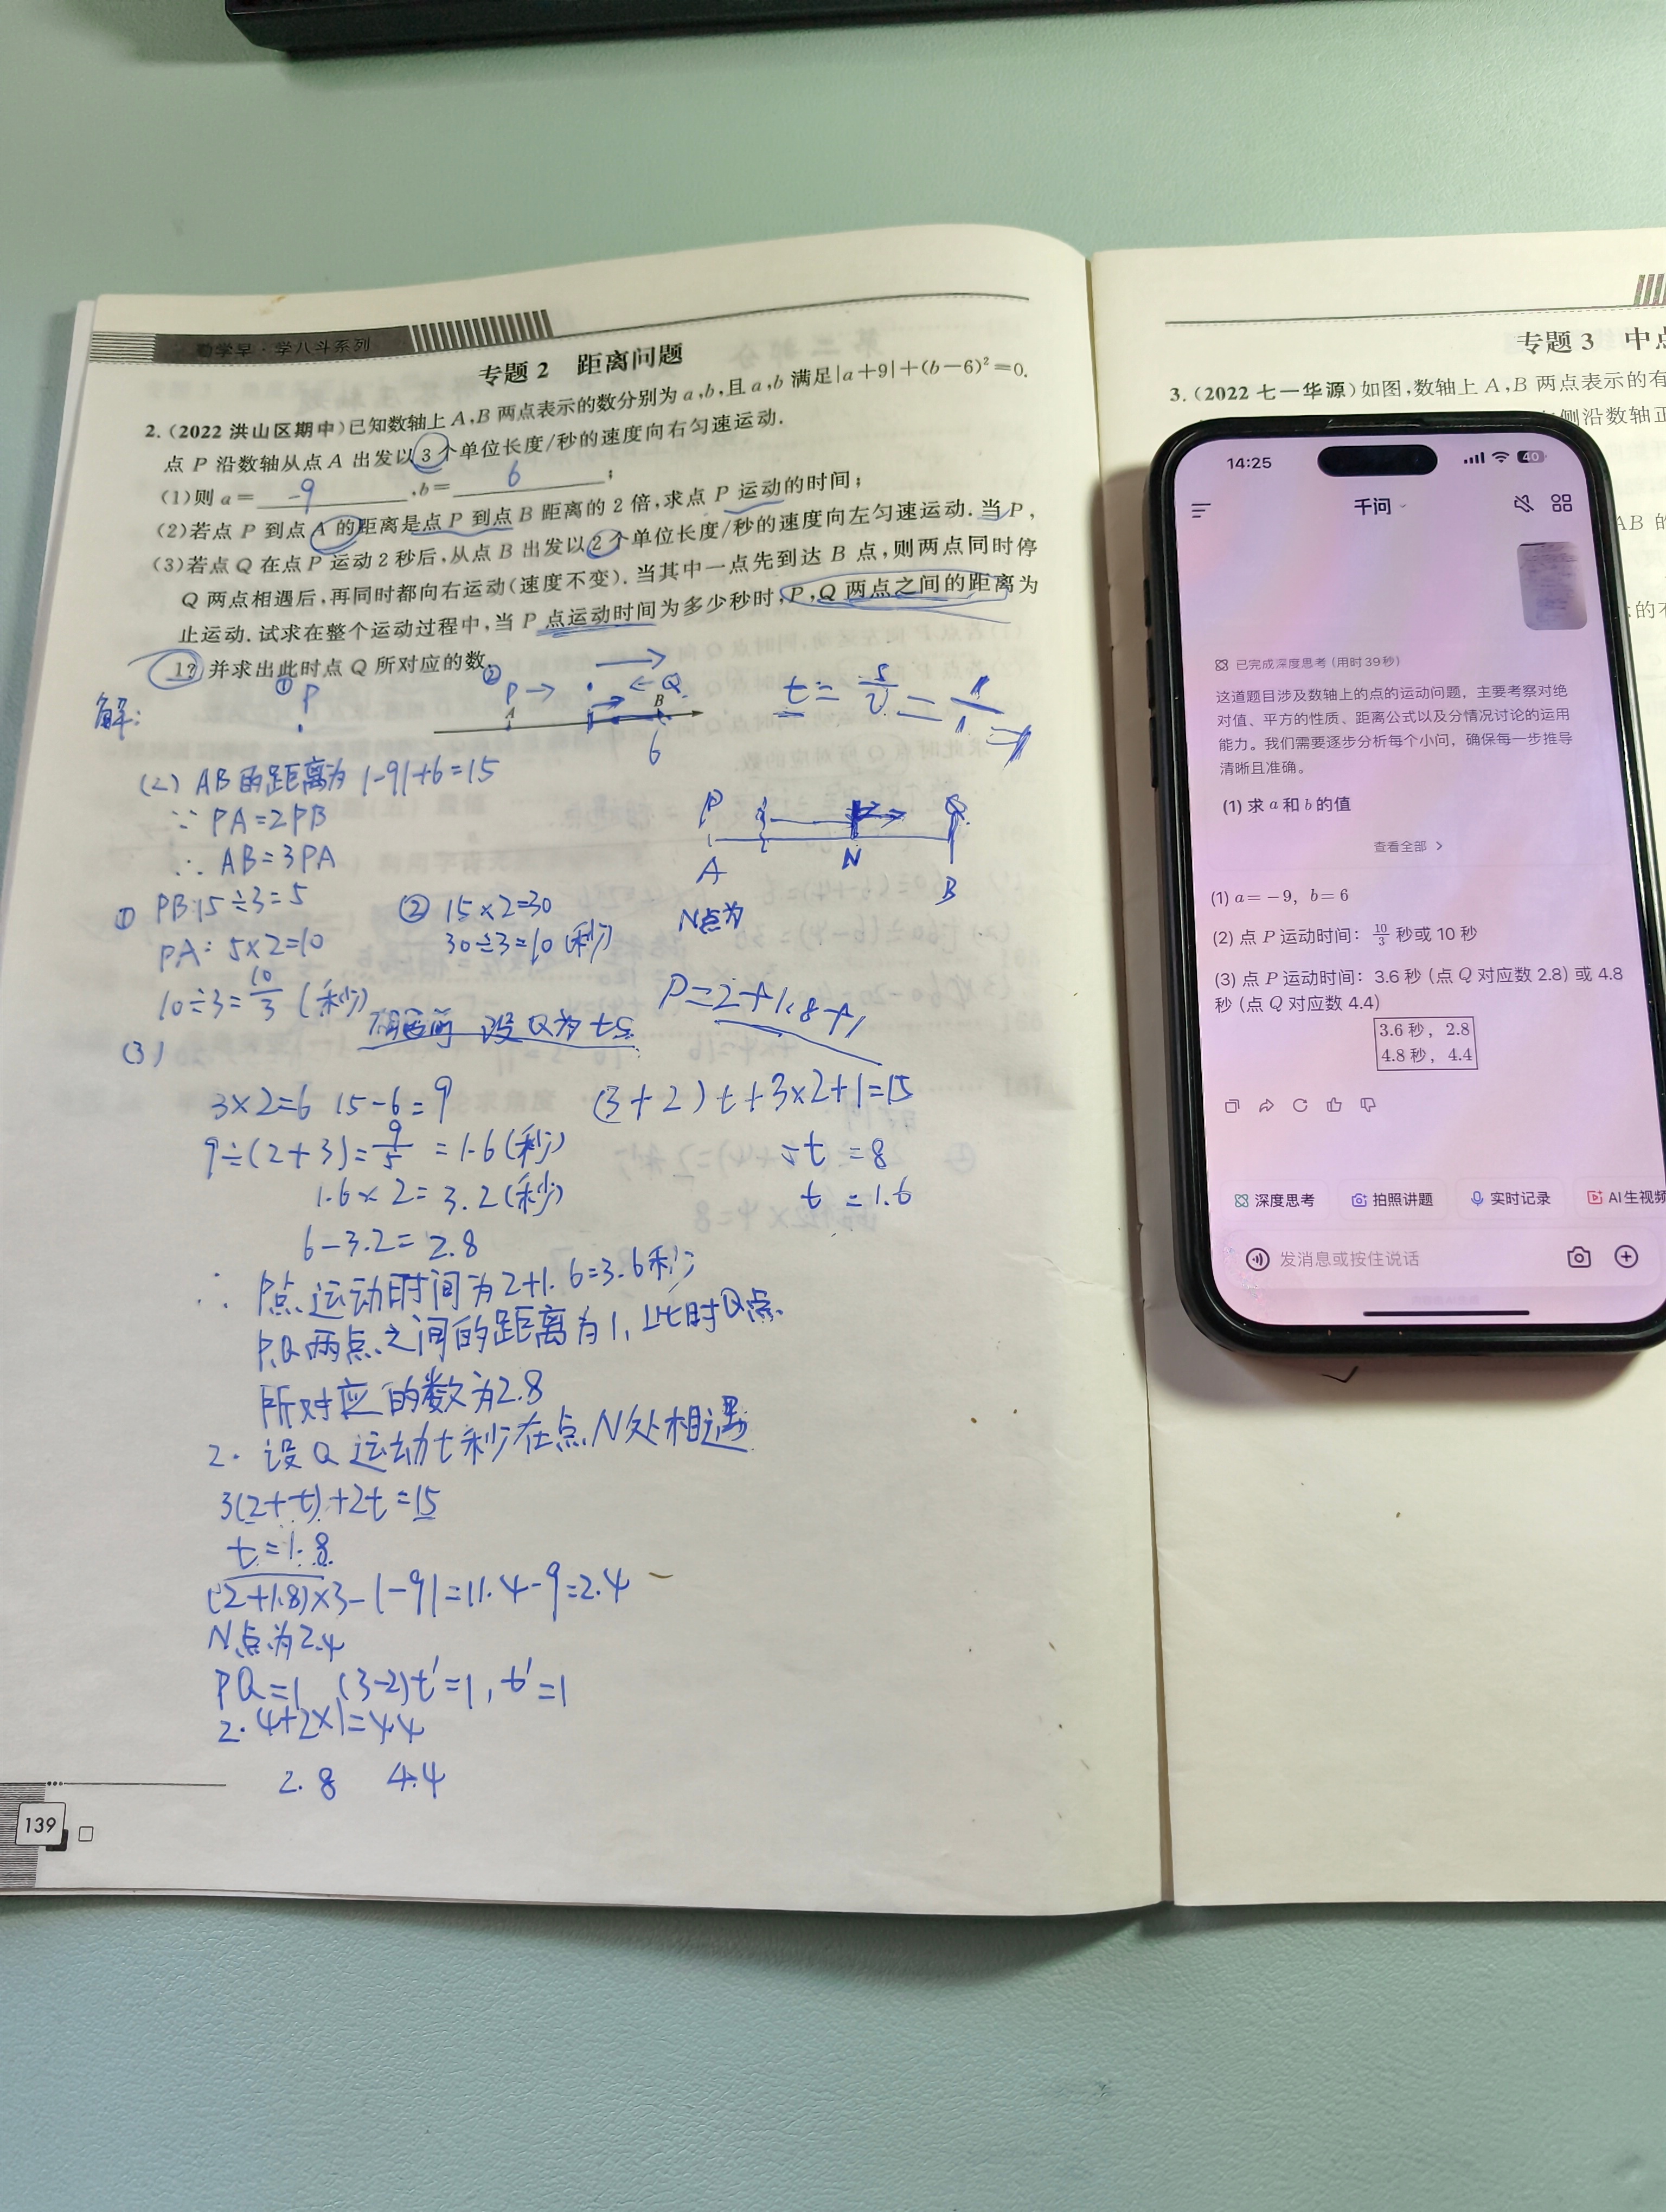 勤学早·学八斗系列
专题2 距离问题
2.(2022 洪山区期中)已知数轴上A,B两点表示的数分别为a,b,且a,b满足|a+9|+(b-6)²=0.
点P沿数轴从点A出发以3个单位长度/秒的速度向右匀速运动.
(1)则a= -9 ,b= 6 ;
(2)若点P到点A的距离是点P到点B距离的2倍,求点P运动的时间;
(3)若点Q在点P运动2秒后,从点B出发以2个单位长度/秒的速度向左匀速运动.当P,
Q两点相遇后,再同时都向右运动(速度不变).当其中一点先到达B点,则两点同时停
止运动.试求在整个运动过程中,当P点运动时间为多少秒时,P,Q两点之间的距离为
1?并求出此时点Q所对应的数.
解:
① P
② P → ← Q
A B
6
t = s/v = 1/1 = 1
(2) AB的距离为 |-9|+6=15
∵ PA=2PB
∴ AB=3PA
① PB:15÷3=5
PA: 5×2=10
10÷3=10/3 (秒)
② 15×2=30
30÷3=10 (秒)
P Q
A N B
N点为
P=2+1.8+1
(3)
相遇前 设Q为ts
3×2=6 15-6=9
9÷(2+3)=9/5 =1.6(秒)
1.6×2=3.2(秒)
6-3.2=2.8
(3+2)t+3×2+1=15
5t =8
t =1.6
∴ P点运动时间为2+1.6=3.6秒
P,Q两点之间的距离为1,此时Q点
所对应的数为2.8
2. 设Q运动t秒在点N处相遇
3(2+t)+2t=15
t=1.8
(2+1.8)×3-|-9|=11.4-9=2.4
N点为2.4
PQ=1 (3-2)t'=1, t'=1
2.4+2×1=4.4
2.8 4.4
139
专题3 中点
3.(2022 七一华源)如图,数轴上A,B两点表示的有
侧沿数轴正
AB的
14:25
40
千问
已完成深度思考 (用时39秒)
这道题目涉及数轴上的点的运动问题,主要考察对绝
对值、平方的性质、距离公式以及分情况讨论的运用
能力。我们需要逐步分析每个小问,确保每一步推导
清晰且准确。
(1) 求 a 和 b 的值
查看全部 >
(1) a = -9, b = 6
(2) 点 P 运动时间: 10/3 秒或 10 秒
(3) 点 P 运动时间: 3.6 秒 (点 Q 对应数 2.8) 或 4.8
秒 (点 Q 对应数 4.4)
3.6 秒, 2.8
4.8 秒, 4.4
深度思考 拍照讲题 实时记录 AI生视频
发消息或按住说话